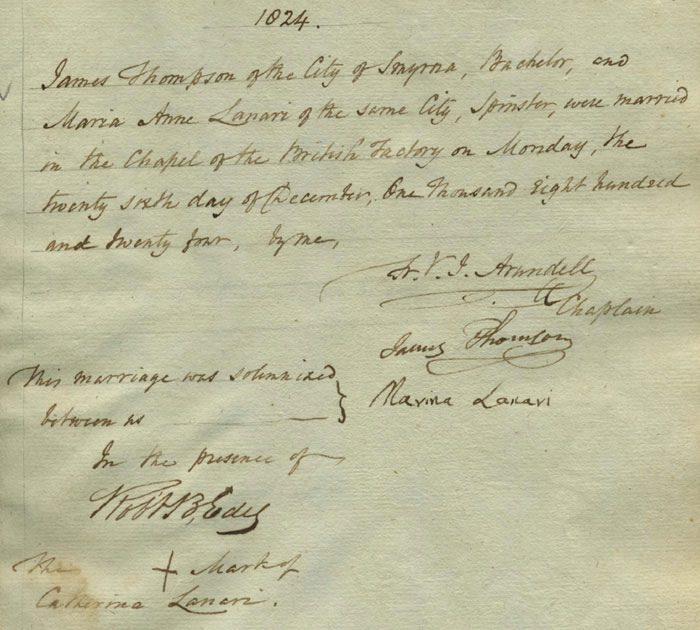 1824.
James Thompson of the City of Smyrna, Bachelor, and
Maria Anne Lanari of the same City, Spinster, were married
in the Chapel of the British Factory on Monday, the
twenty sixth day of December, One Thousand Eight hundred
and twenty four, by me,
Fr. V. J. Arundell
Chaplain
James Thomson
Marina Lanari
This marriage was solemnized
between us
In the presence of
Robt B, Edes
The + Mark of
Catherina Lanari.